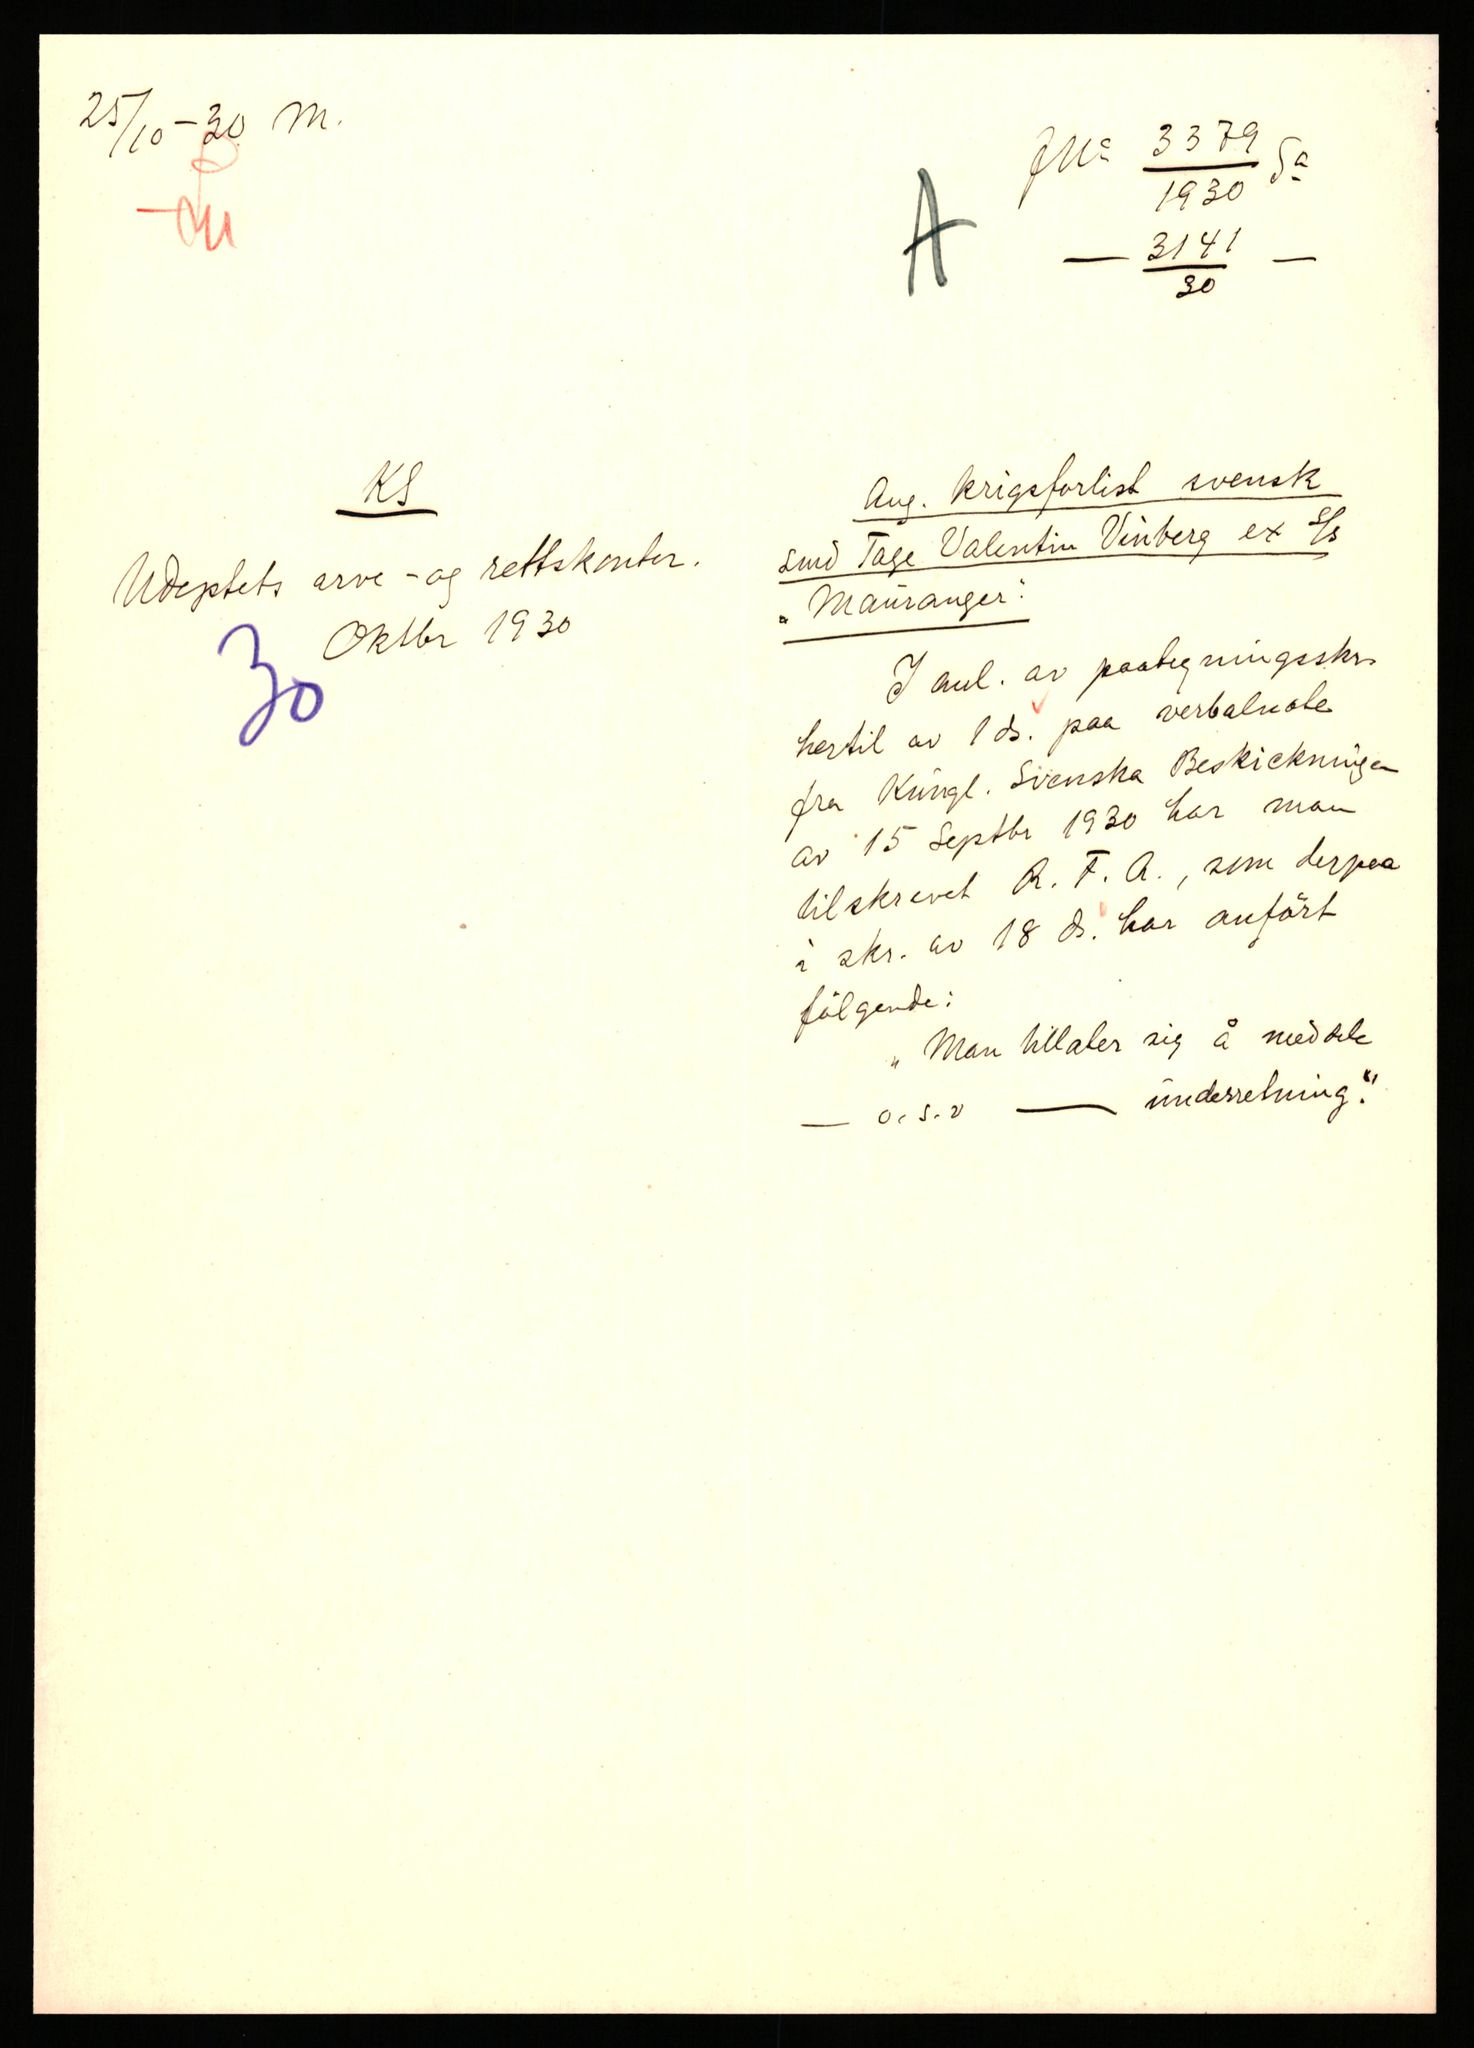 25/10-30 M.
A
JNo 3379/1930 Sa
— 3141/30 —
KS
Udeptets arve-og rettskontor.
Oktbr 1930
30
Ang. krigsforlist svensk
smd Tage Valentin Vinberg ex S/s
"Mauranger".
I anl. av paategningsskr.
hertil av 1 ds. paa verbalnote
fra Kungl. Svenska Beskickningen
av 15 Septbr 1930 har man
tilskrevet R.T.A., som derpaa
i skr. av 18 ds. har anført
følgende:
"Man tillater sig å meddele
— o.s.v — underretning."